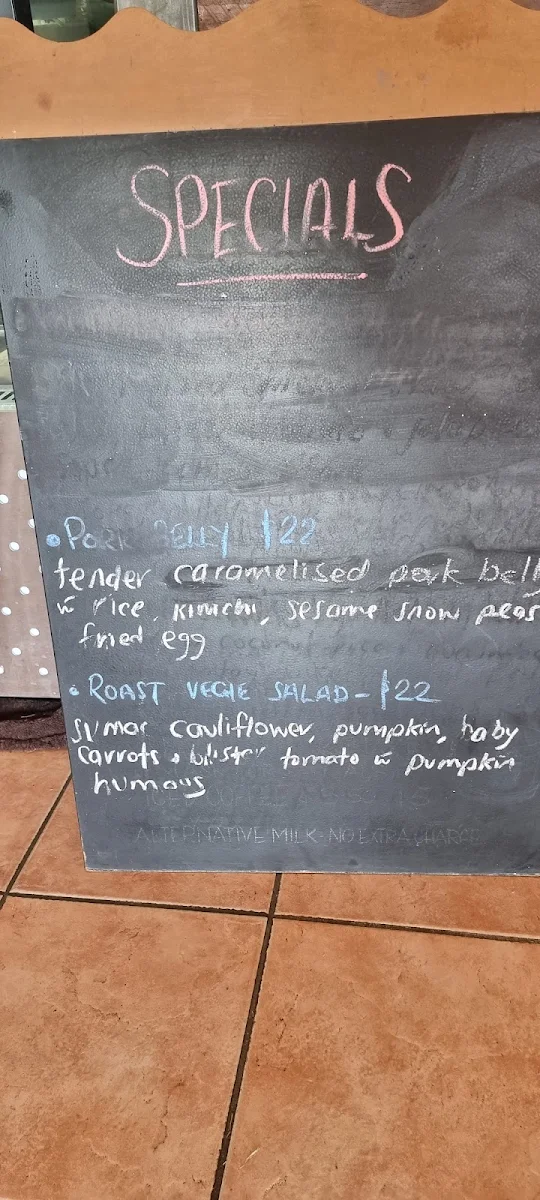 SPECIALS
• PORK BELLY $22
tender caramelised pork belly
w rice, kimichi, sesame snow peas
fried egg
• ROAST VEGIE SALAD - $22
sumac cauliflower, pumpkin, baby
carrots, blister tomato w pumpkin
humous
ALTERNATIVE MILK - NO EXTRA CHARGE